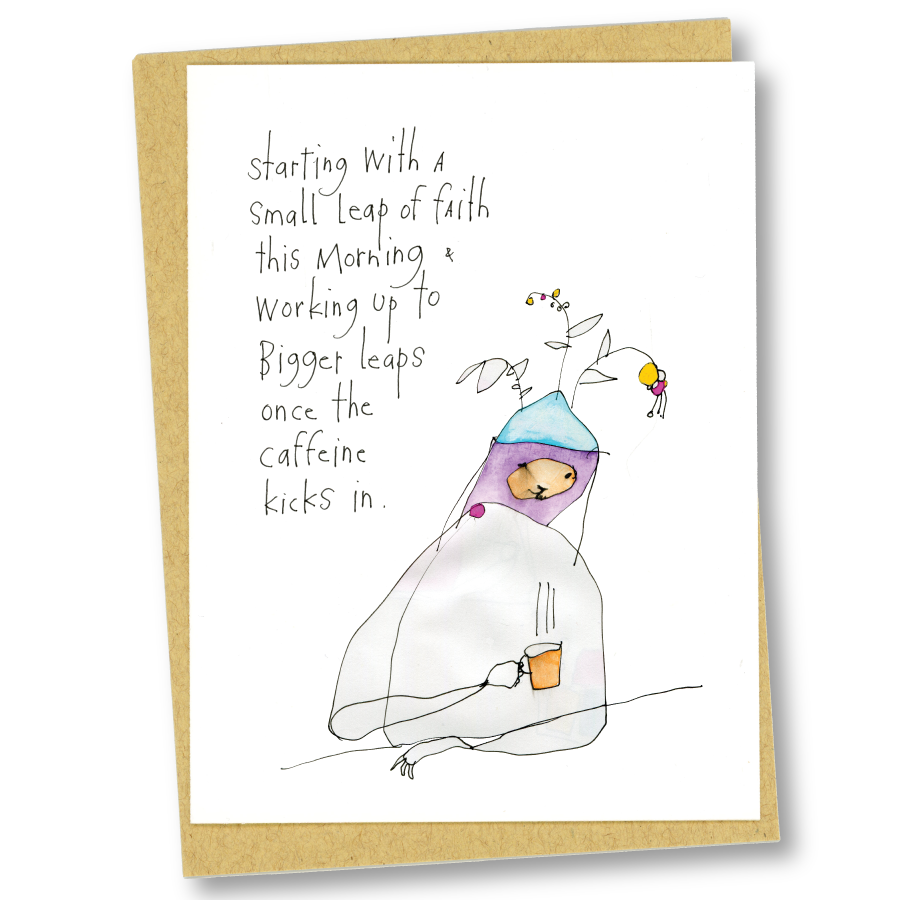 starting with A
small leap of fAith
this Morning &
working up to
Bigger leaps
once the
caffeine
kicks in.